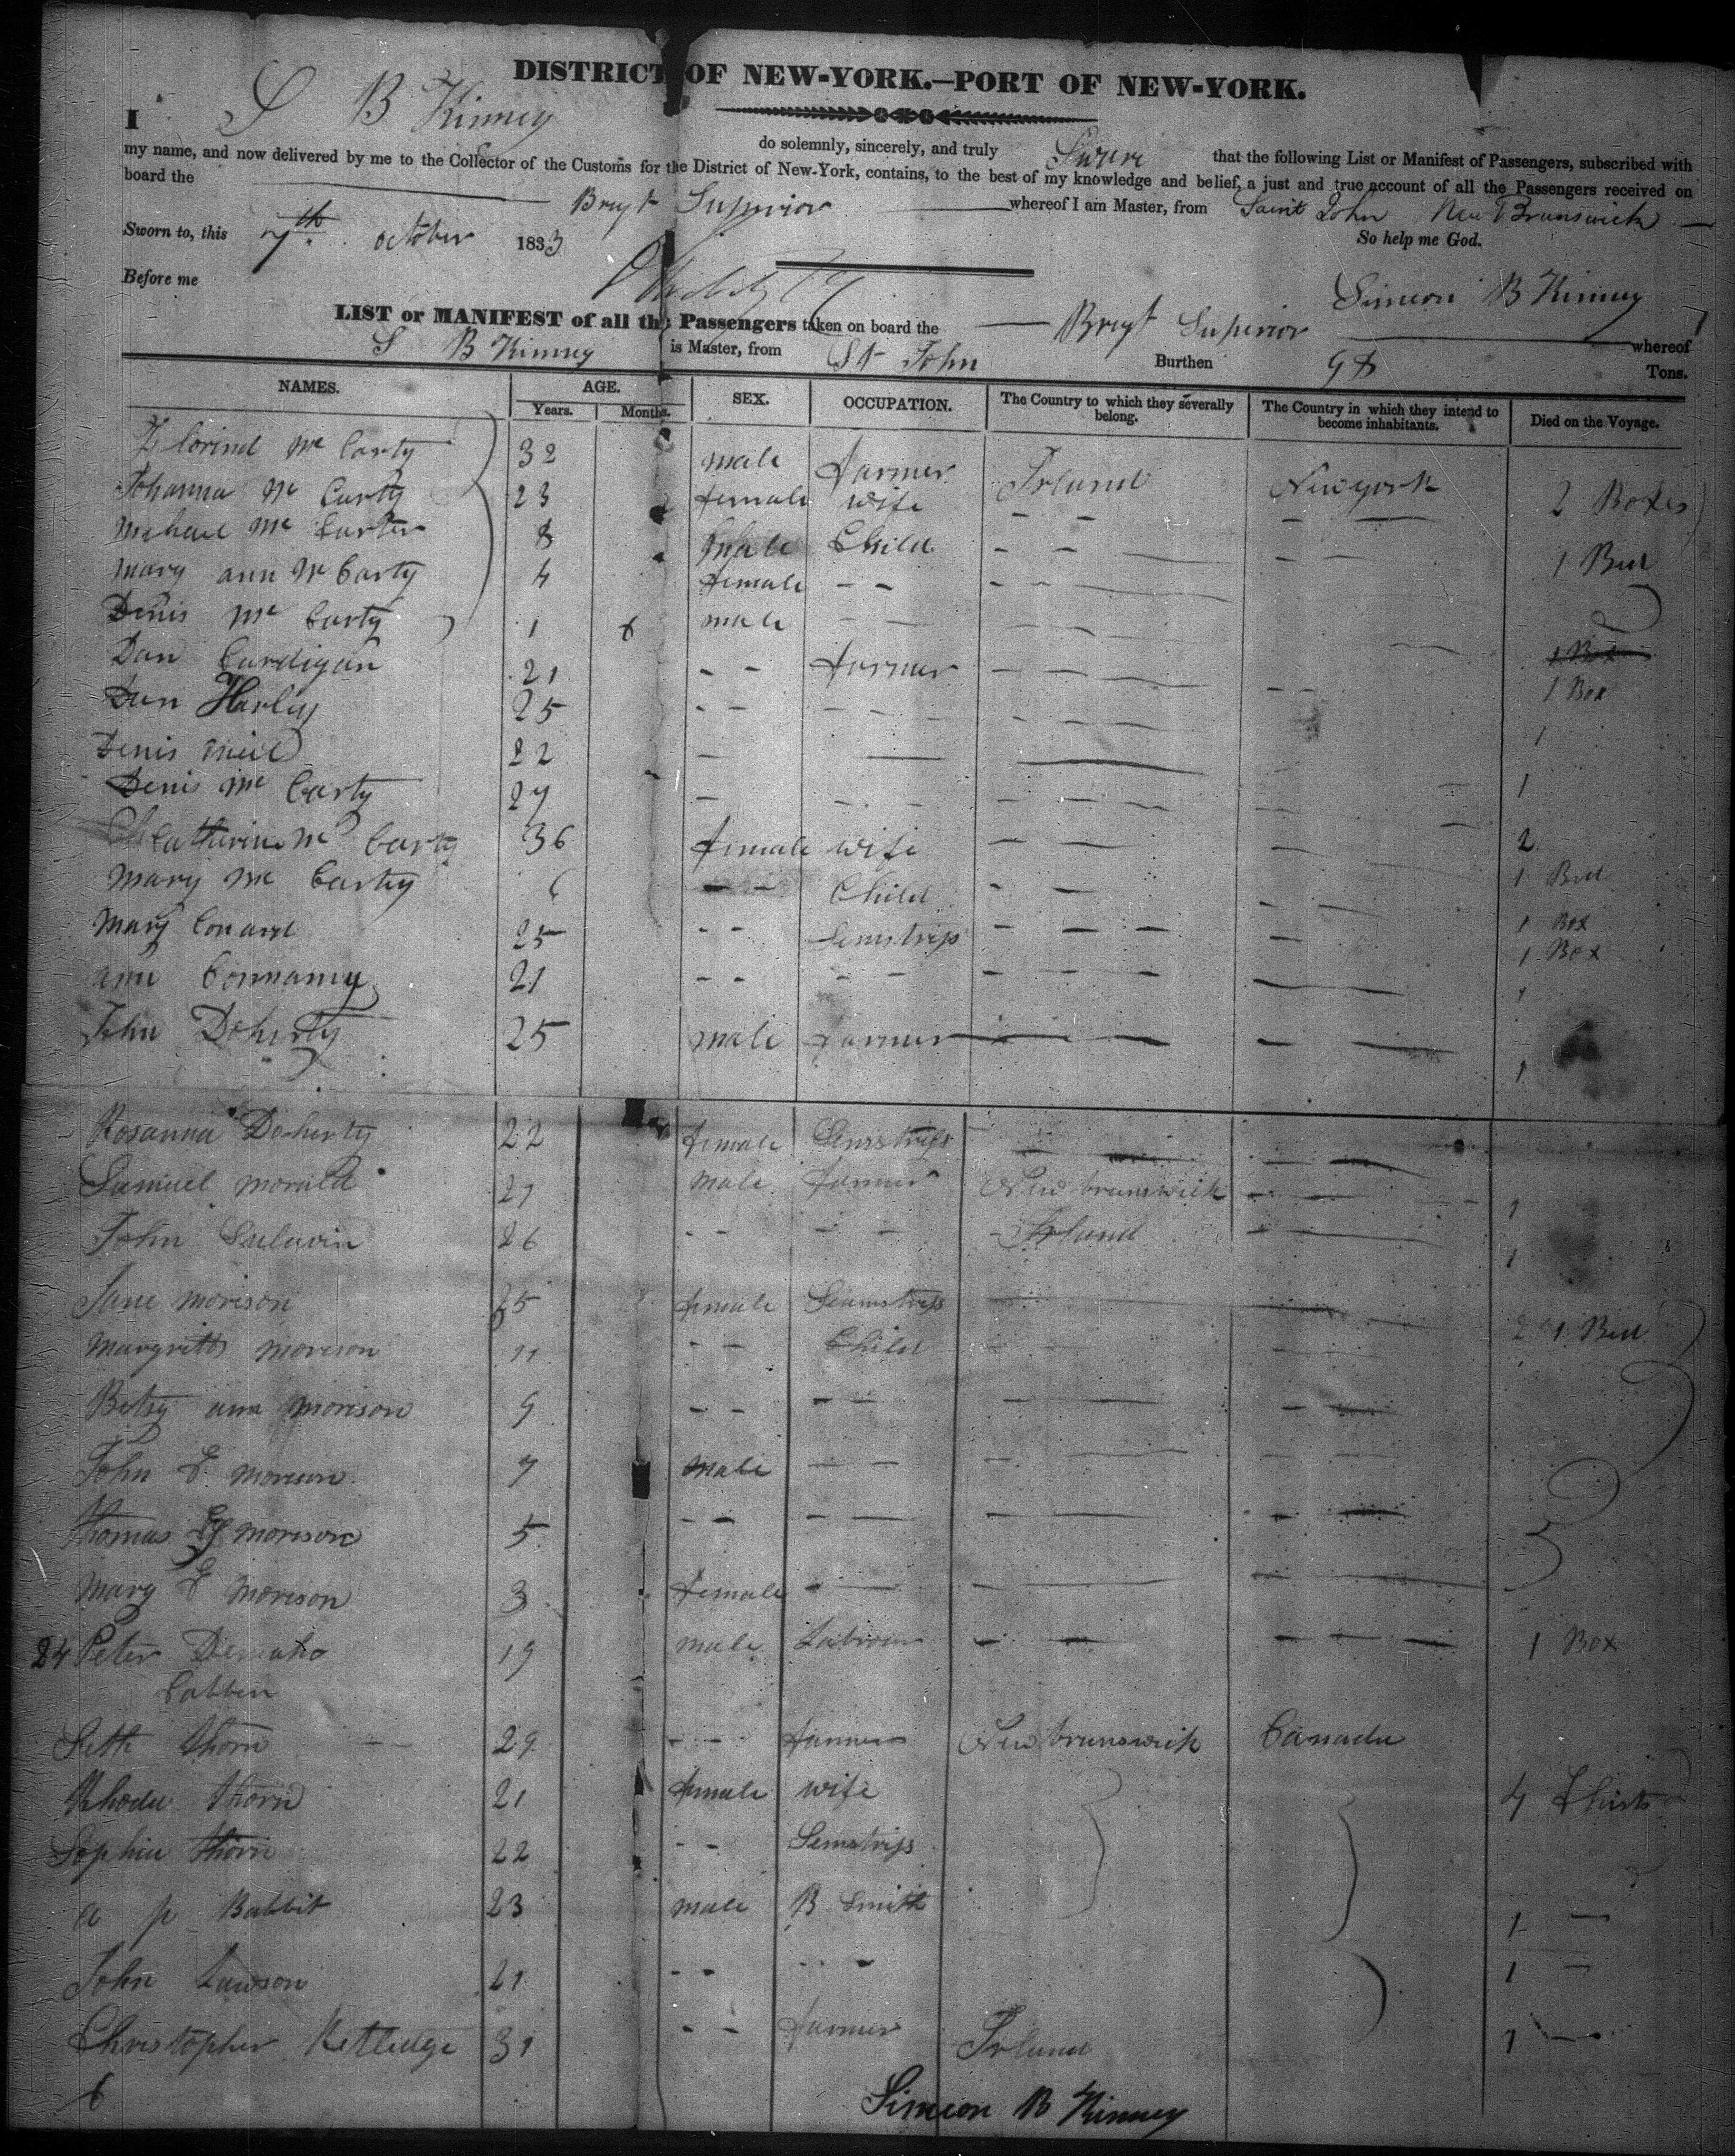 DISTRICT OF NEW-YORK.—PORT OF NEW-YORK.
I S B Kinney do solemnly, sincerely, and truly Swear that the following List or Manifest of Passengers, subscribed with
my name, and now delivered by me to the Collector of the Customs for the District of New-York, contains, to the best of my knowledge and belief, a just and true account of all the Passengers received on
board the Brigt Superior whereof I am Master, from Saint John New Brunswick
Sworn to, this 7th October 1833 So help me God.
Before me
Simeon B Kinney
LIST or MANIFEST of all the Passengers taken on board the Brigt Superior whereof
S B Kinney is Master, from St John Burthen 98 Tons.
NAMES. AGE. Years. Months. SEX. OCCUPATION. The Country to which they severally belong. The Country in which they intend to become inhabitants. Died on the Voyage.
Florind Mc Carty 32 male farmer Irland New york 2 Boxes
Johanna Mc Carty 23 female wife - - - -
Michael Mc Carter 8 male Child - - - - 1 Bed
Mary ann Mc Carty 4 female - - - -
Denis Mc Carty 1 6 male - - - - 1 Box
Dan Cardigan 21 - - farmer - - 1 Box
Dan Harley 25 - - - - - - - - 1
Denis 22 - - - - 1
Denis Mc Carty 27 - - - - - - 2
Catharine Mc Carty 36 female wife - - 1 Bed
Mary Mc Carty 6 - - Child - - - - 1 Box
Mary Conard 25 - - Semstriss - - - - 1 Box
ann Connamy 21 - - - - - - - 1
John Doherty 25 male farmer - - - - 1
Rosanna Doherty 22 female Semstriss - - - -
Samuel 21 male farmer New brunswick - - 1
John Sulavin 26 - - - - Irland - - 1
Jane morison 35 female Seamstriss 2 1 Bed
Margrett morison 11 - - Child
Betsy ann morison 9 - - - - - - - -
John E morison 7 male - - - - - -
Thomas morison 5 - - - - - - - -
Mary E morison 3 female - - - - - -
24 Peter 19 male Labrour - - - - 1 Box
Cabben
Seth Thorn 29 - - farmer New brunswick Canada
Rhoda Thorn 21 female wife 4 Chists
Sophia Thorn 22 - - Semstriss
a p Babbit 23 male B Smith 1 -
John Lawson 21 - - - - 1 -
Christopher Ketledge 31 - - farmer Irland 1 -
6
Simeon B Kinney